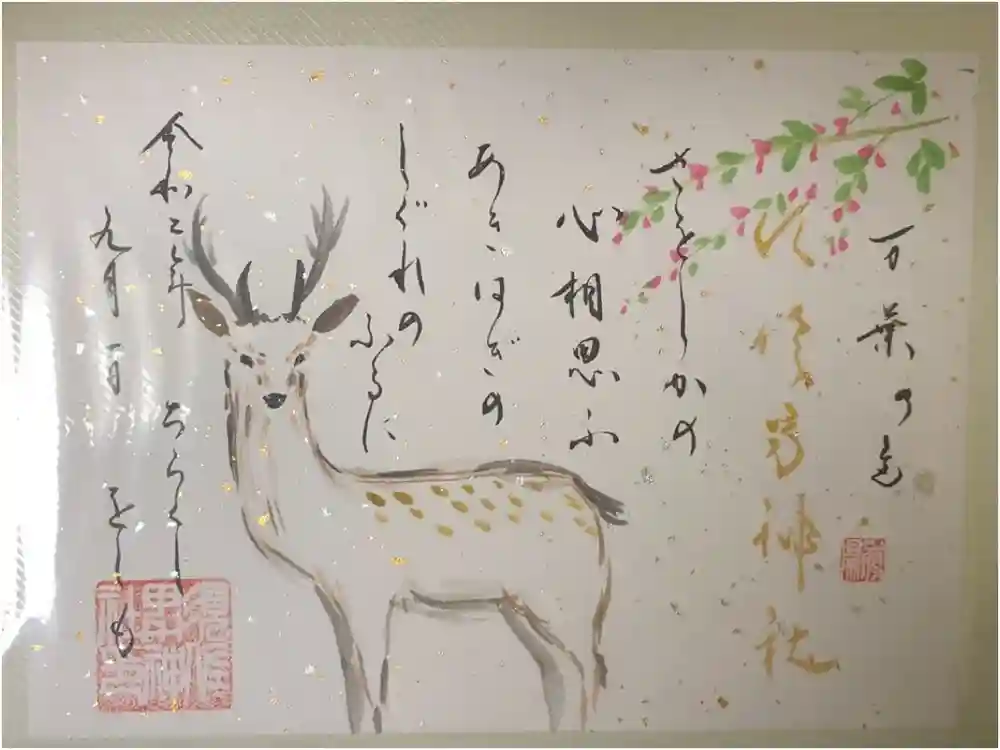 万葉の
須佐男神社
さをしかの
心相思ふ
あきはぎの
しぐれの
ふるに
ちらくし
をしも
令和二年
九月一日